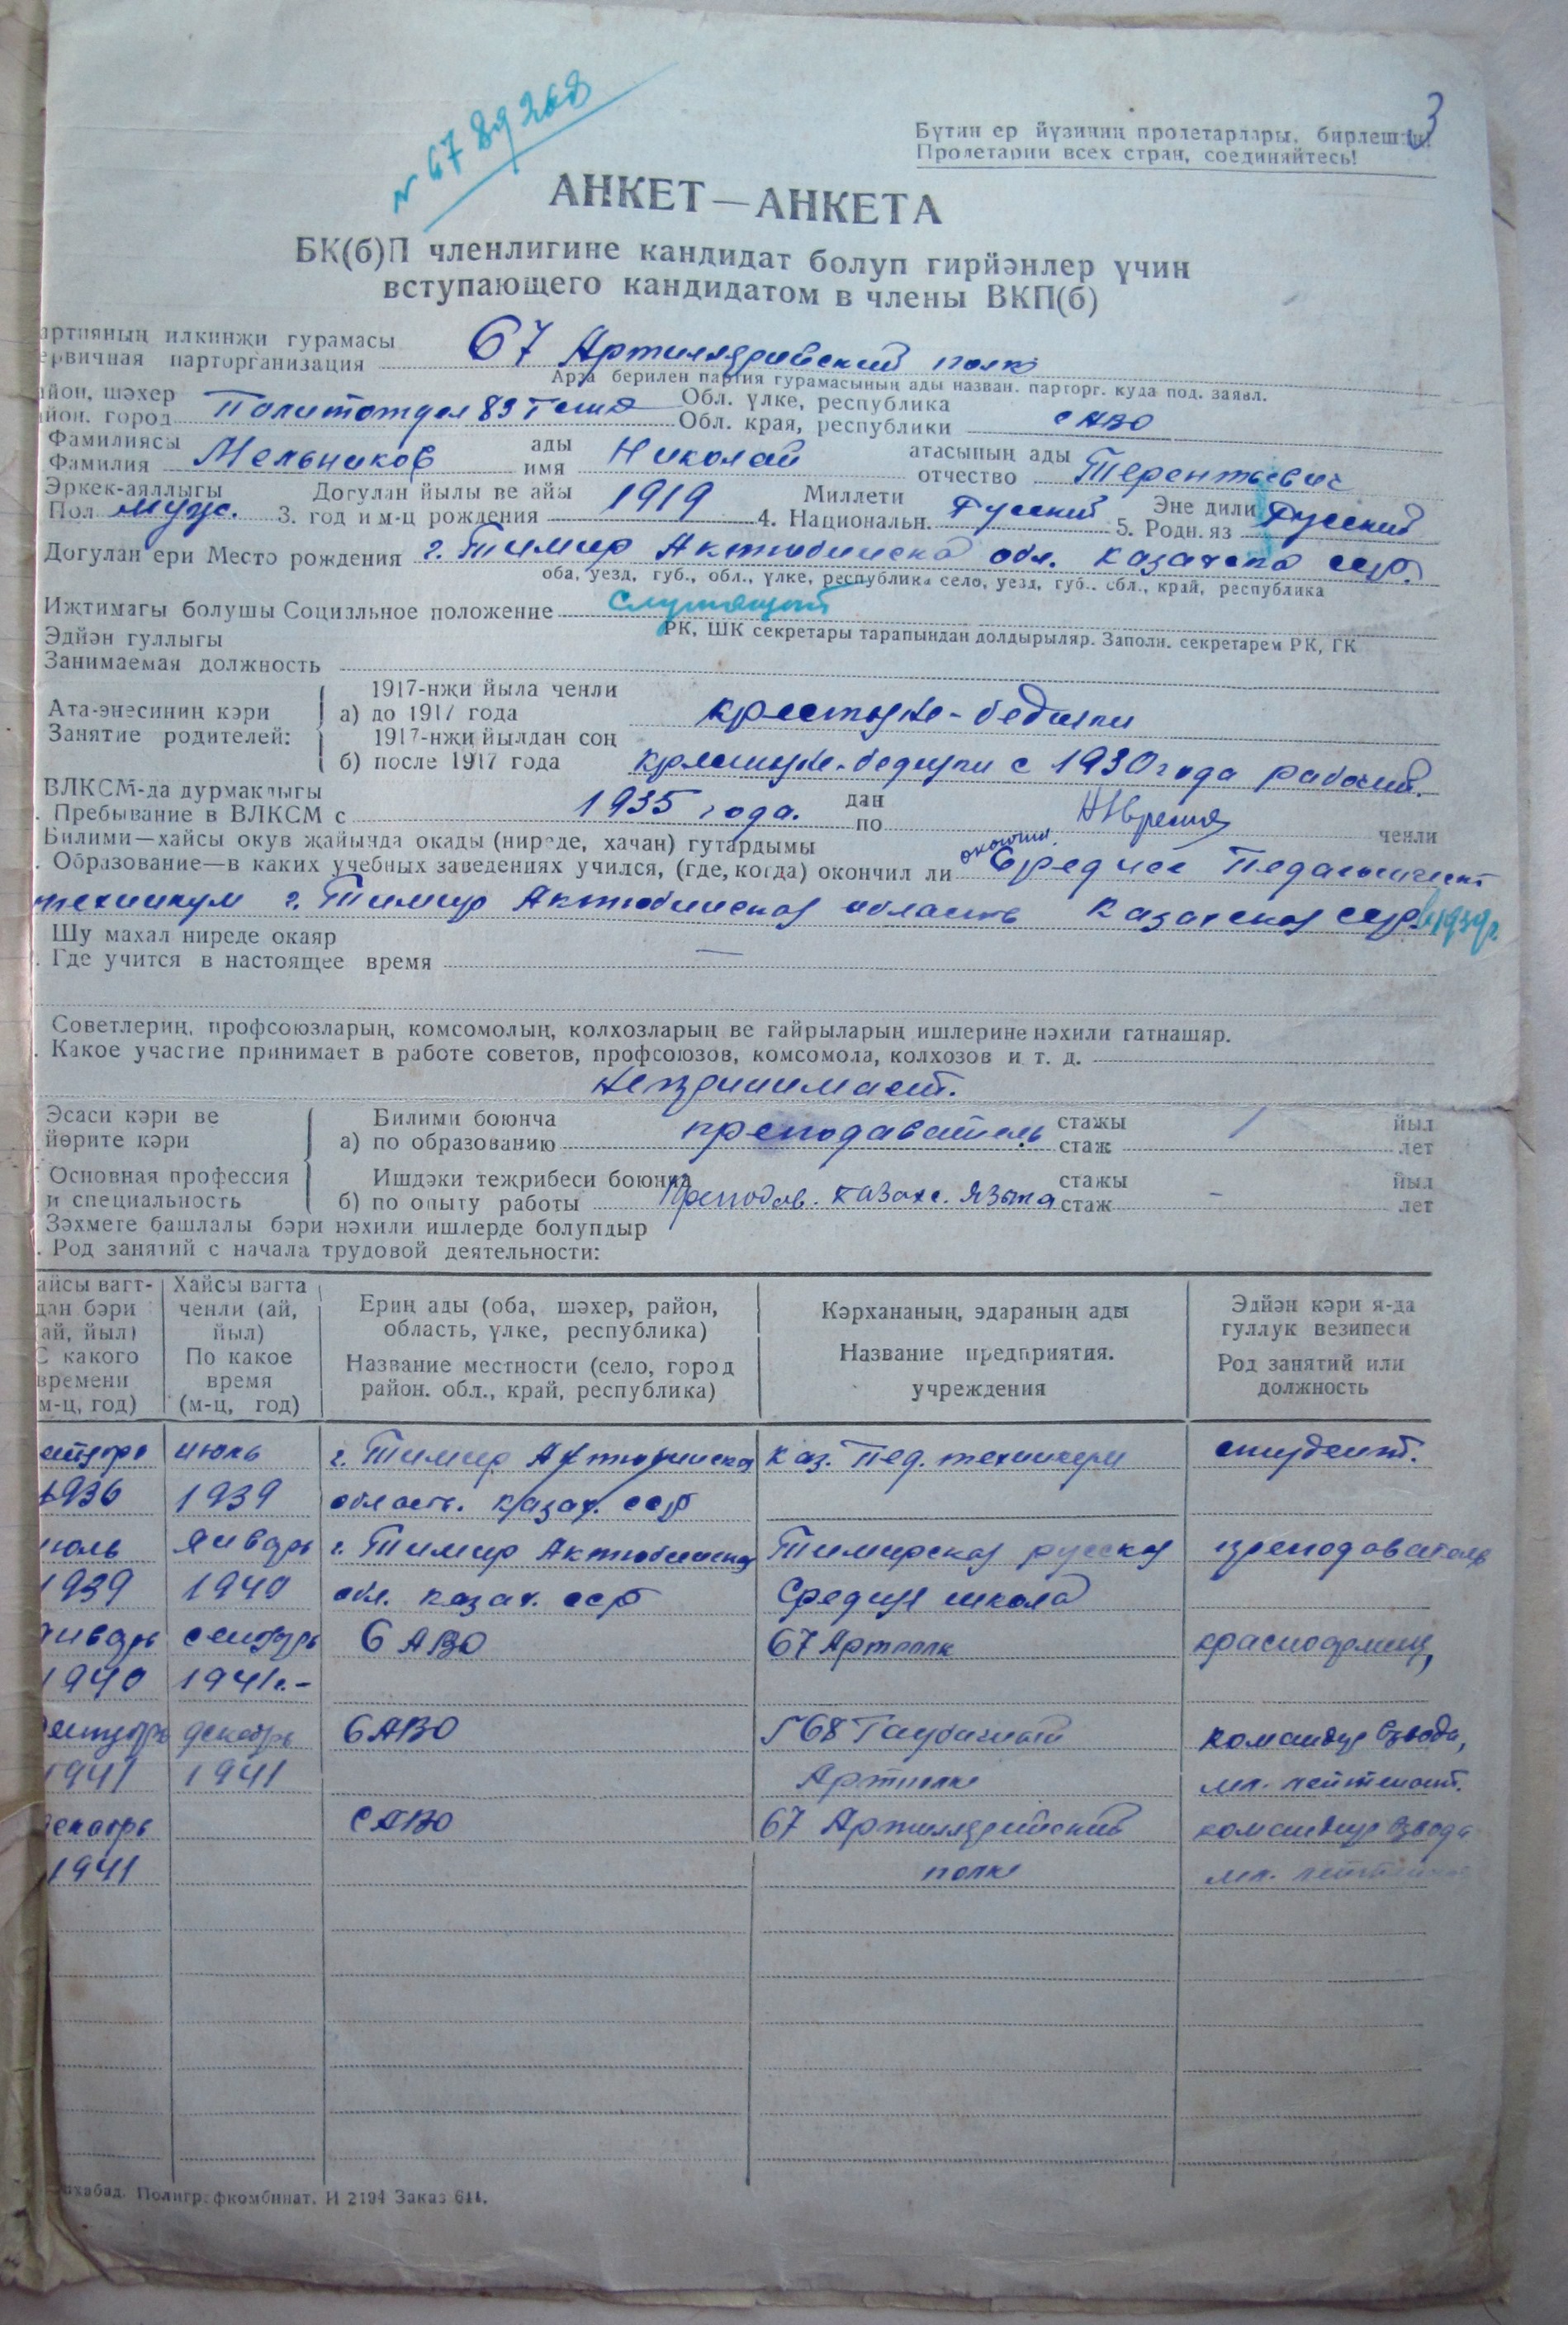 3
№ 6789268
Бүтин ер йүзиниң пролетарлары, бирлешиң!
Пролетарии всех стран, соединяйтесь!
АНКЕТ — АНКЕТА
БК(б)П членлигине кандидат болуп гирйәнлер үчин
вступающего кандидатом в члены ВКП(б)
артияның илкинҗи гурамасы
ервичная парторганизация 67 Артиллерийский полк
Арза берилен партия гурамасының ады назван. парторг. куда под. заявл.
айон, шәхер Обл. үлке, республика
йон. город Политотдел 83 Обл. края, республики САВО
Фамилиясы ады атасының ады
Фамилия Мельников имя Николай отчество Терентьевич
Эркек-аяллыгы Догулан йылы ве айы Миллети Эне дили
Пол муж. 3. год и м-ц рождения 1919 4. Национальн. Русский 5. Родн. яз Русский
Догулан ери Место рождения г. Темир Актюбинска обл. Казахска ССР.
оба, уезд, губ., обл., үлке, республика село, уезд, губ.. обл., край, республика
Иҗтимагы болушы Социальное положение Служащий
РК, ШК секретары тарапындан долдырыляр. Заполн. секретарем РК, ГК
Эдйән гуллыгы
Занимаемая должность
1917-нҗи йыла ченли
Ата-энесиниң кәри а) до 1917 года крестьяне-бедняки
Занятие родителей: 1917-нҗи йылдан соң
б) после 1917 года крестьяне-бедняки с 1930 года рабочий.
ВЛКСМ-да дурмаклыгы дан
. Пребывание в ВЛКСМ с 1935 года. по Н/время ченли
Билими—хайсы окув җайында окады (ниреде, хачан) гутардымы
. Образование—в каких учебных заведениях учился, (где, когда) окончил ли окончил Среднее Педагогическ
техникум г. Темир Актюбинская область Казахская ССР
Шу махал ниреде окаяр
. Где учится в настоящее время —
Советлериң, профсоюзларың, комсомолың, колхозларың ве гайрыларың ишлерине нәхили гатнашяр.
. Какое участие принимает в работе советов, профсоюзов, комсомола, колхозов и т. д.
Не принимает.
Эсаси кәри ве Билими боюнча стажы йыл
йөрите кәри а) по образованию преподаватель стаж 1 лет
Основная профессия Ишдәки теҗрибеси боюнча стажы йыл
и специальность б) по опыту работы Преподав. казахс. языка стаж – лет
Зәхмеге башлалы бәри нәхили ишлерде болупдыр
. Род занятий с начала трудовой деятельности:
айсы вагт- Хайсы вагта Ериң ады (оба, шәхер, район, Кәрхананың, эдараның ады Эдйән кәри я-да
дан бәри ченли (ай, область, үлке, республика) гуллук везипеси
ай, йыл) йыл) Название местности (село, город Название предприятия. Род занятий или
С какого По какое район. обл., край, республика) учреждения должность
времени время
м-ц, год) (м-ц, год)
ентябрь июль г. Темир Актюбинска Каз. Пед. техникум студент.
1936 1939 область. Казах. ССР
июль январь г. Темир Актюбинская Темирская русская преподаватель
1939 1940 обл. Казах. ССР Средняя школа
январь сентябрь САВО 67 Артполк красноармеец,
1940 1941г.-
сентябрь декабрь САВО 568 Гаубичный командир взвода,
1941 1941 Артполк мл. лейтенант.
декабрь САВО 67 Артиллерийский командир взвода
1941 полк мл. лейтенант
шхабад. Полиграфкомбинат. И 2194 Заказ 611.